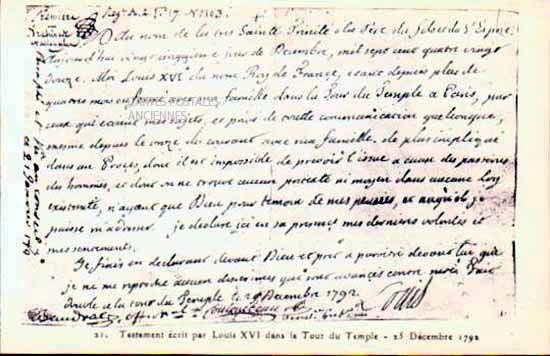 Au nom de la tres Sainte Trinité du Pere du fils et du St Esprit.
aujourd'hui vingt cinquieme jour de Decembre, mil sept cent quatre vingt
douze. Moi Louis XVI du nom Roy de France, etant depuis plus de
quatre mois enfermé avec ma famille dans la Tour du Temple a Paris, par
ceux qui etaient mes sujets, et privé de toute communication quelconque,
mesme depuis le onze du courant avec ma famille. de plus impliqué
dans un Procès, dont il est impossible de prevoir l'issue a cause des passions
des hommes, et dont on ne trouve aucun pretexte ni moyen dans aucune Loy
existante, n'ayant que Dieu pour temoin de mes pensées, et auquel je
puisse m'adresser. je declare ici en sa presence mes dernieres volontés et
mes sentiments.
Je finis en declarant devant Dieu et pret a paroitre devant lui que
je ne me reproche aucun des crimes qui sont avancés contre moi. Fait
double a la tour du Temple le 25 Decembre 1792
Louis
CARTES POSTALES
ANCIENNES
21. Testament écrit par Louis XVI dans la Tour du Temple - 25 Décembre 1792